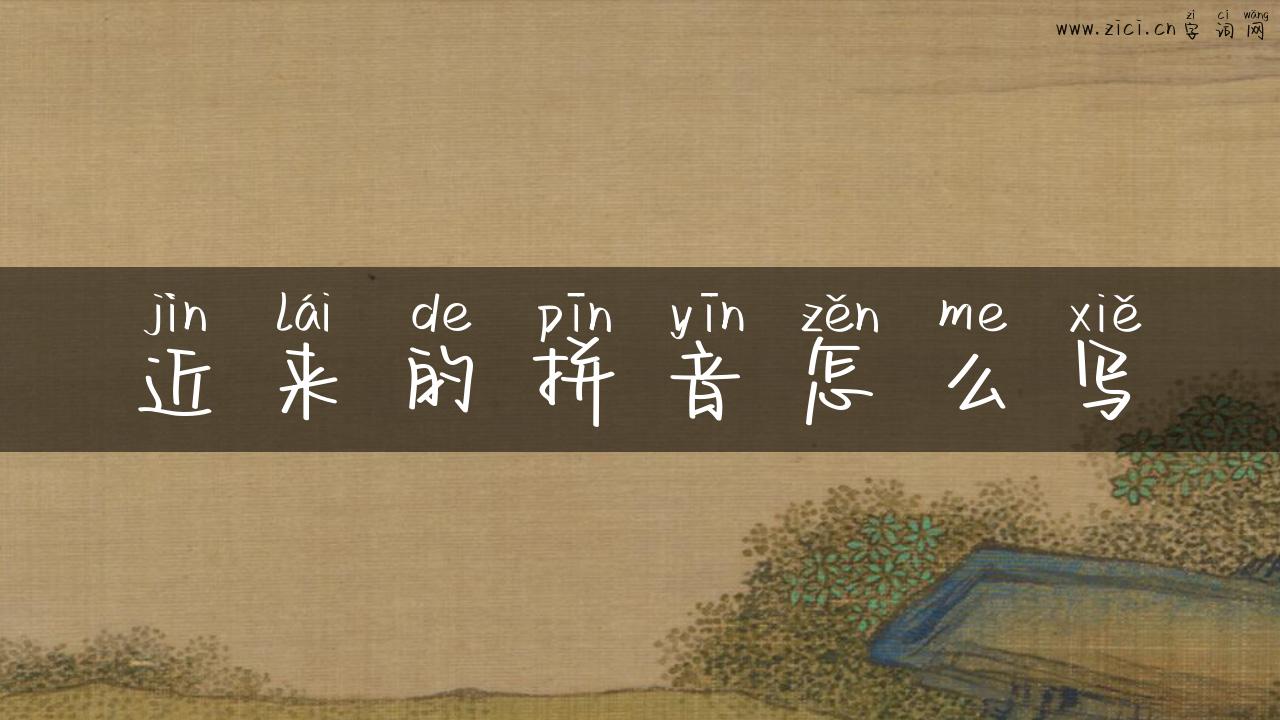 zì cí wǎng
www.zici.cn 字 词 网
jìn lái de pīn yīn zěn me xiě
近 来 的 拼 音 怎 么 写